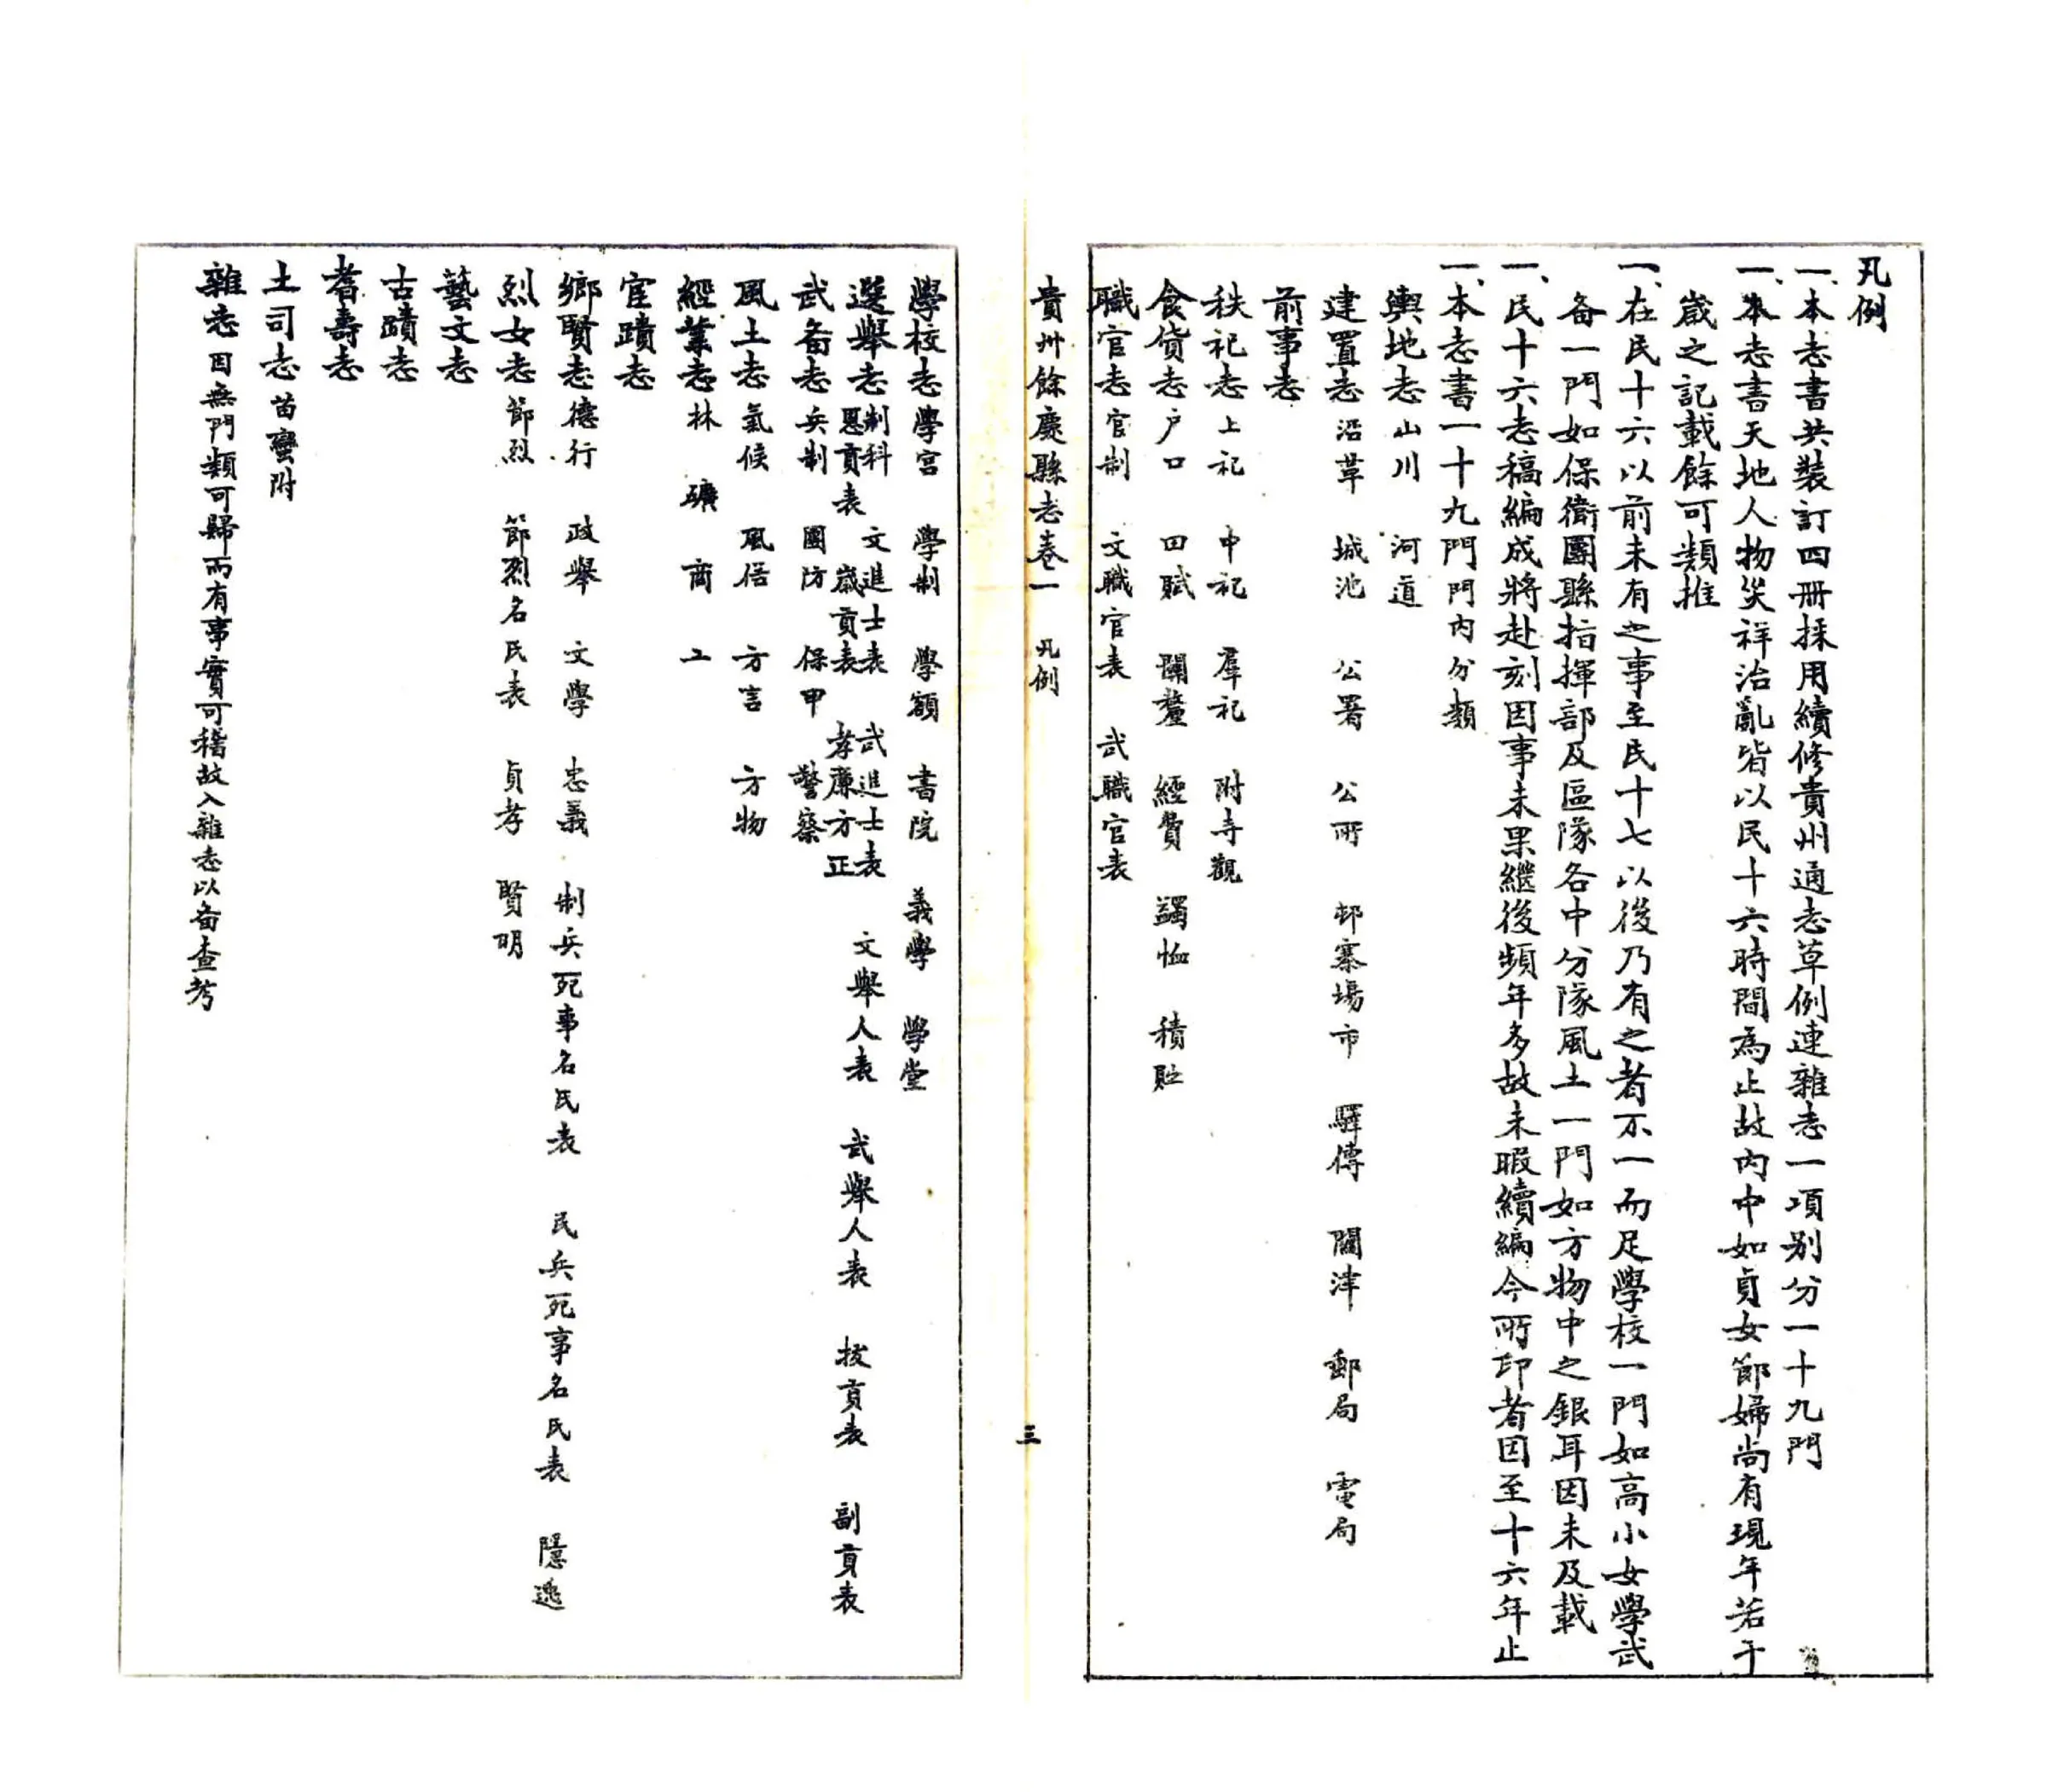 凡例
一、本志書共裝訂四冊採用續修貴州通志草例連雜志一項别分一十九門
一、本志書天地人物災祥治亂皆以民十六時間為止故内中如貞女節婦尚有現年若干
歲之記載餘可類推
一、在民十六以前未有之事至民十七以後乃有之者不一而足學校一門如高小女學武
备一門如保衛團縣指揮部及區隊各中分隊風土一門如方物中之銀耳因未及載
一、民十六志稿編成將赴刻因事未果繼後頻年多故未暇續編今所印者因至十六年止
一、本志書一十九門門内分類
輿地志 山川 河道
建置志 沿革 城池 公署 公所 邨寨場市 驛傳 關津 郵局 電局
前事志
秩祀志 上祀 中祀 羣祀 附寺觀
食貨志 户口 田賦 關釐 經費 蠲恤 積貯
職官志 官制 文職官表 武職官表
貴州餘慶縣志卷一 凡例 三
學校志 學宮 學制 學額 書院 義學 學堂
選舉志 制科 文進士表 武進士表 文舉人表 武舉人表 拔貢表 副貢表
恩貢表 歲貢表 孝廉方正
武备志 兵制 國防 保甲 警察
風土志 氣候 風俗 方言 方物
經業志 林 礦 商 工
宦蹟志
鄉賢志 德行 政舉 文學 忠義 制兵死事名氏表 民兵死事名氏表 隱逸
烈女志 節烈 節烈名氏表 貞孝 賢明
藝文志
古蹟志
耆壽志
土司志 苗蠻附
雜志 因無門類可歸而有事實可稽故入雜志以备查考